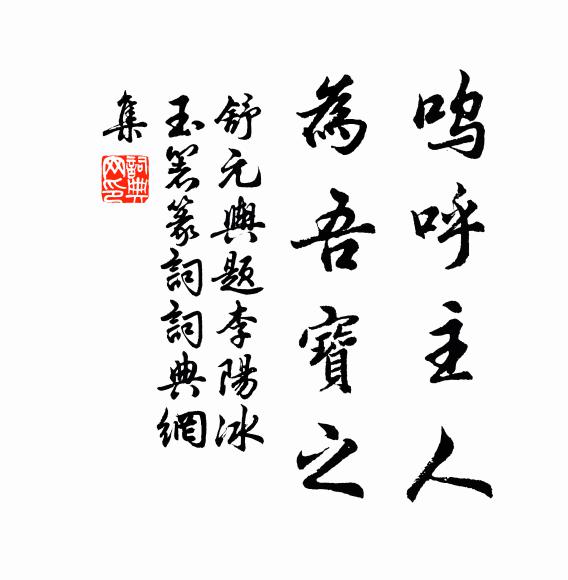 嗚呼主人
為吾寶之
舒元輿題李陽冰
玉箸篆詞詞典網
集
詞典網印